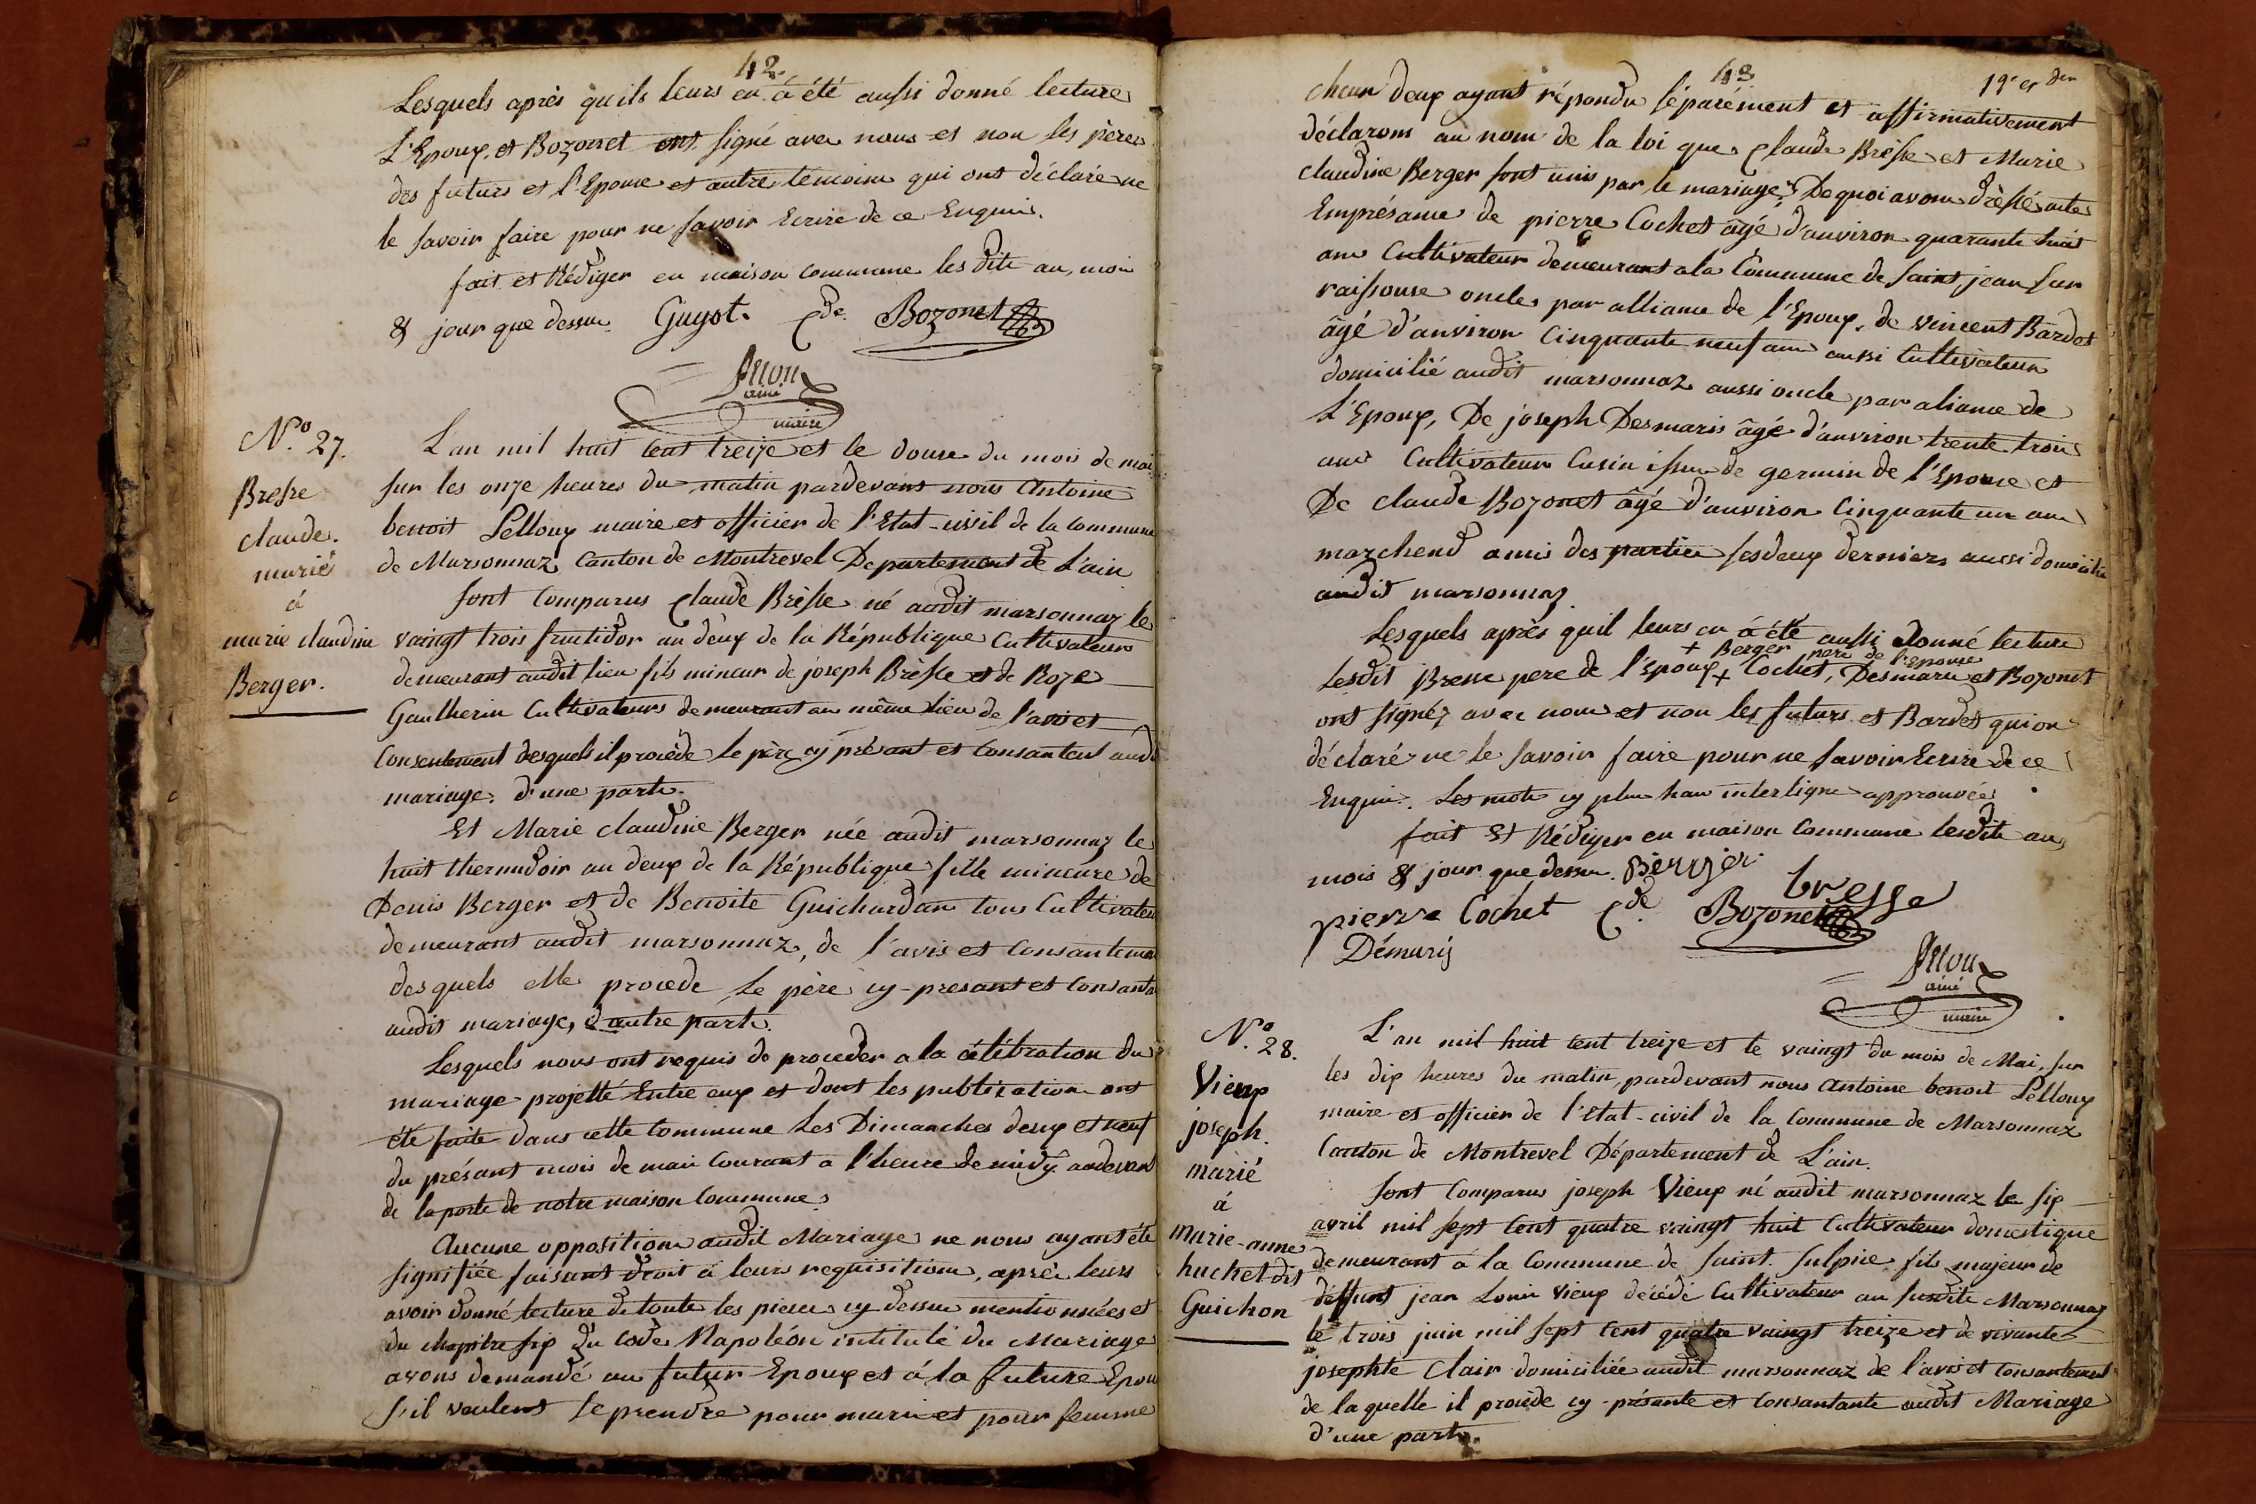 42.
Lesquels après qu'ils leurs en á été aussi donné lecture
L'Epoux, et Bozonet ont signé avec nous et non les pères
des futurs et l'Epouse et autre temoins qui ont déclaré ne
le savoir faire pour ne savoir Ecrire de ce Enquis.
fait et Rédiger en maison commune les dits an, mois
& jour que dessus. Guyot. Cde. Bozonet
ainé
maire
N.º 27.
Bresse
claude.
marié
á
marie claudine
Berger.
L'an mil huit cent treize et le douze du mois de mai
sur les onze heures du matin pardevant nous Antoine
benoit Pelloux maire et officier de l'Etat-civil de la commune
de Marsonnaz Canton de Montrevel Departement de L'ain
sont Comparus Claude Brèsse né audit marsonnaz le
vaingt trois fructidor an deux de la République Cultivateur
demeurant audit lieu fils mineur de joseph Brèsse et de Roze
Gautherin Cultivateurs demeurant au même lieu de l'avis et
Consentement desquels il procède le père cy présant et Consantant audit
mariage. d'une parte.
Et Marie claudine Berger née audit marsonnaz le
huit thermidoir an deux de la République fille mineure de
Denis Berger et de Benoite Guichardan tous Cultivateurs
demeurant audit marsonnaz, de l'avis et Consantement
desquels elle procede Le père cy-presant et Consantant
audit mariage, d'autre parte.
Lesquels nous ont requis de proceder a la célébration du
mariage projetté Entre eux et dont les publication ont
été faite dans cette Commune Les Dimanches deux et neuf
du présant mois de mai Courant a l'heure de midy audevant
de la porte de notre maison Commune.
Aucune opposition audit Mariage ne nous ayant été
signifiée faisant droit á leurs requisition, après leurs
avoir donné lecture de toute les pieces cy dessus mentionnées et
du chapitre six du code Napoléon intitulé du Mariage
avons demandé au futur Epoux et á la future Epouse
s'il veulent se prendre pour mari et pour femme
43
19e et der
chcun deux ayant répondu séparément et affirmativement
déclarons au nom de la loi que Claude Brèsse et Marie
claudine Berger sont unis par le mariage. De quoi avons drèssé acte
Emprésance de pierre Cochet âgé d'anviron quarante huit
ans Cultivateur demeurant a la Commune de saint jean sur
raissouse oncle par alliance de l'Epoux, de vincent Bardet
âgé d'anviron Cinquante neuf ans aussi Cultivateur
domicilié audit marsonnaz aussi oncle par aliance de
L'Epoux, De joseph Desmaris âgé d'anviron trente trois
ans Cultivateur Cusin issu de germin de l'Epouse et
De claude Bozonet âgé d'anviron Cinquante un ans
marchend amis des parties sesdeux derniers aussi domicilié
audit marsonnaz.
Lesquels après quil leurs en á été aussi donné lecture
+ Berger pere de l'Epouse
Lesdit Bresse pere de l'Epoux + Cochet, Desmaris et Bozonet
ont signéz avec nous et non les futurs et Bardet qui on
déclaré ne le savoir faire pour ne savoir Ecrire de ce
Enquis. Les mots cy plus haut interligne approuvée
fait et Rédiger en maison Commune lesdits an
mois & jour que dessus. Berger
bresse
pierre Cochet Cde. Bozonet
Démaris
ainé
maire
N.º 28.
Vieux
joseph.
marié
á
Marie-anne
huchet dit
Guichon
L'an mil huit cent treize et le vaingt du mois de Mai, sur
les dix heures du matin, pardevant nous Antoine benoit Pelloux
maire et officier de l'Etat-civil de la Commune de Marsonnaz
Canton de Montrevel Département de L'ain.
sont Comparus joseph Vieux né audit marsonnaz le six
avril mil sept Cent quatre vaingt huit Cultivateur domestique
demeurant á la Commune de saint. sulpice fils majeur de
deffunt jean Louis vieux décédé Cultivateur au susdite Marsonnaz
le trois juin mil sept Cent quatre vaingt treize et de vivante
josephte Clair domiciliée audit marsonnaz de l'avis et Consantement
de laquelle il procède cy-présante et Consantante audit Mariage
d'une parte.